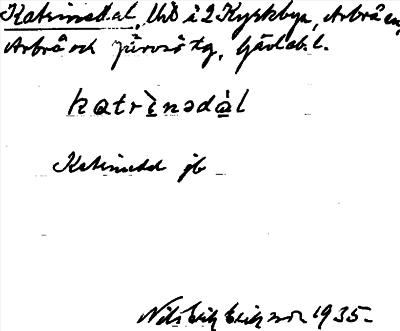 Katrinedal, Uhb i 2 Kyrkbyn, Arbrå sn,
Arbrå och Järvsö tg, Gävleb. l.
katrìnədá̀l
Katrinedal jb
Nils Erik Eriksson 1935.